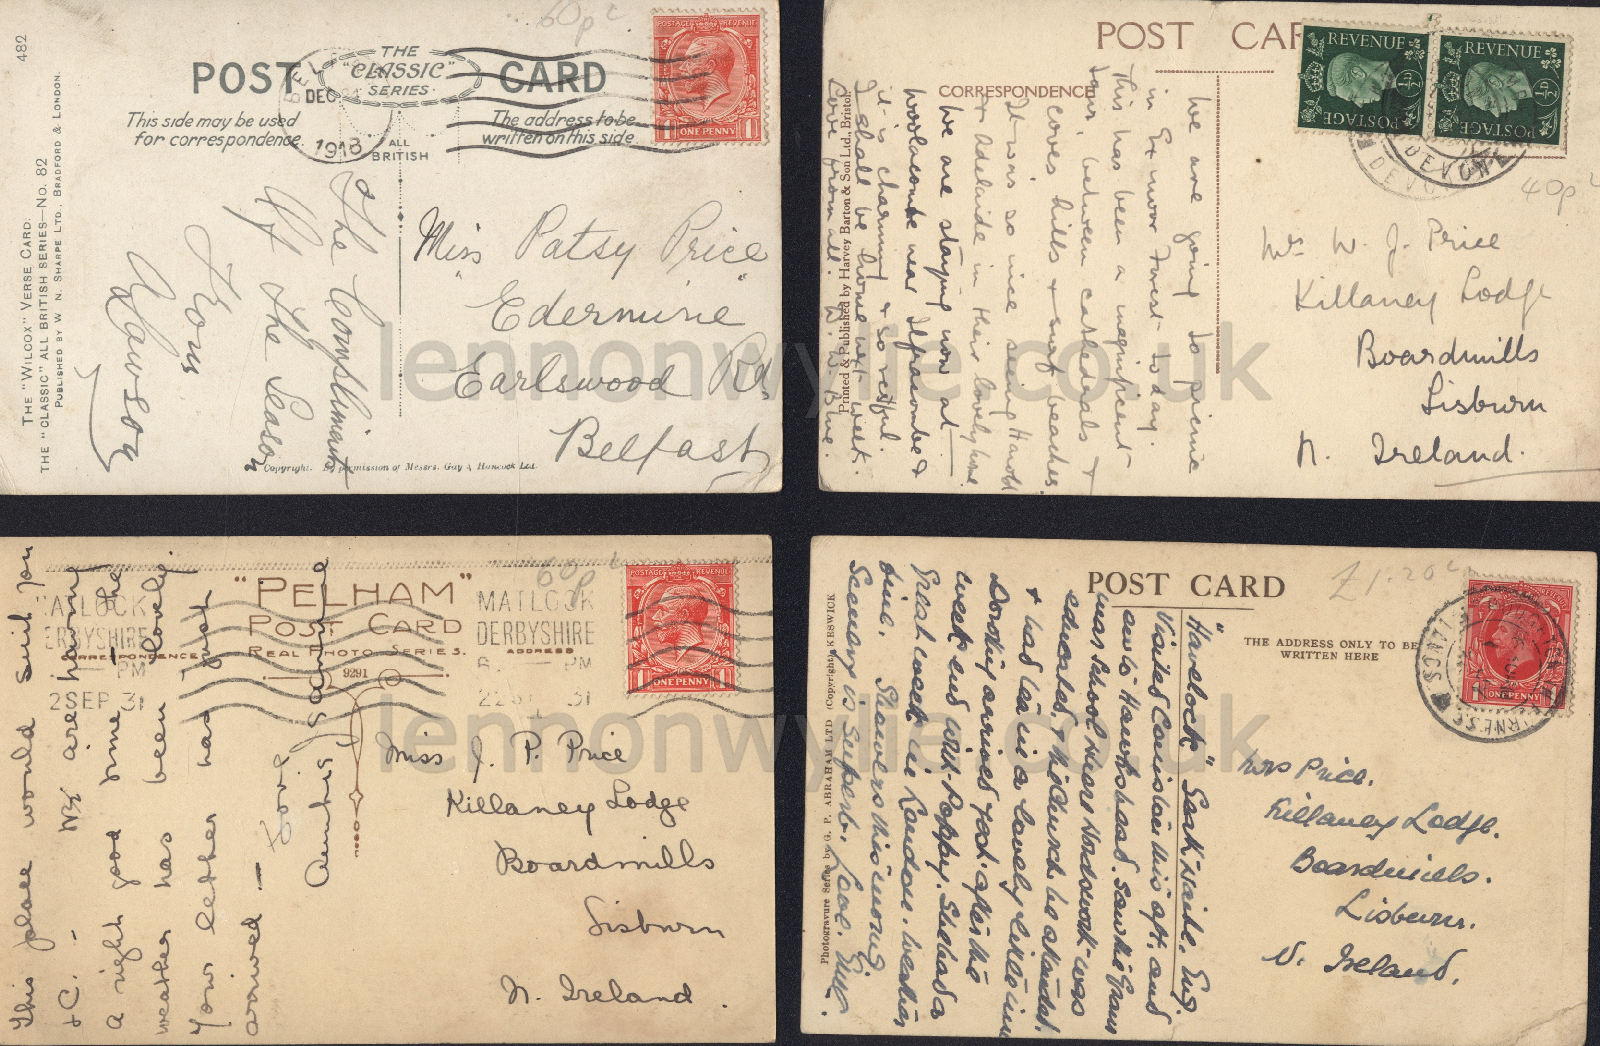 482
POST
THE
"CLASSIC"
SERIES.
CARD
60p
DEC
1918
This side may be used
for correspondence.
ALL
BRITISH
The address to be
written on this side.
POSTAGE REVENUE
ONE PENNY
THE "WILCOX" VERSE CARD.
THE "CLASSIC" ALL BRITISH SERIES—No. 82
PUBLISHED BY W. N. SHARPE LTD., BRADFORD & LONDON.
The Compliments
Of the Season
From
Lawson
Miss Patsy Price
Edermine
Earlswood Rd
Belfast
Copyright. By permission of Messrs. Gay & Hancock Ltd.
POST CAR
CORRESPONDENCE
REVENUE
½D
POSTAGE
REVENUE
½D
POSTAGE
DEVON
DEVON
40p
We are going to picnic
in Exmoor Forest today.
This has been a magnificent
tour, between cathedrals &
coves hills & surf beaches
It was so nice seeing Harold
& Adelaide in their lovely home
We are staying now at
Woolacombe near Ilfracombe &
it is charming & so restful.
I shall be home next week.
Love from all.
Printed & Published by Harvey Barton & Son Ltd., Bristol.
Mr W. J. Price
Killaney Lodge
Boardmills
Lisburn
N. Ireland.
"PELHAM"
POST CARD
REAL PHOTO SERIES.
CORRESPONDENCE
ADDRESS
9291
60p
MATLOCK
DERBYSHIRE
PM
2 SEP 31
MATLOCK
DERBYSHIRE
PM
22 31
POSTAGE REVENUE
ONE PENNY
This place would suit you
& C. - We are having
a right good time & the
weather has been lovely.
Your letter has just
arrived —
Love
Auntie Jeannie
Miss J. P. Price
Killaney Lodge
Boardmills
Lisburn
N. Ireland.
POST CARD
£1.20
THE ADDRESS ONLY TO BE
WRITTEN HERE
ONE PENNY
"Havelock"
Visited Coniston this aft. and
also Hawkshead. Saw the Grammar
School where Wordsworth was
educated, & the church he attended.
& had tea in a lovely little inn
Dorothy arrived back after the
week end with Peppy. She had a
great week in London. Weather
divine. Showers this morning
Scenery is superb. Love.
Photogravure Series by G. P. ABRAHAM LTD (Copyright) KESWICK
Mrs Price.
Killaney Lodge.
Boardmills.
Lisburn.
N. Ireland.
lennonwylie.co.uk
lennonwylie.co.uk